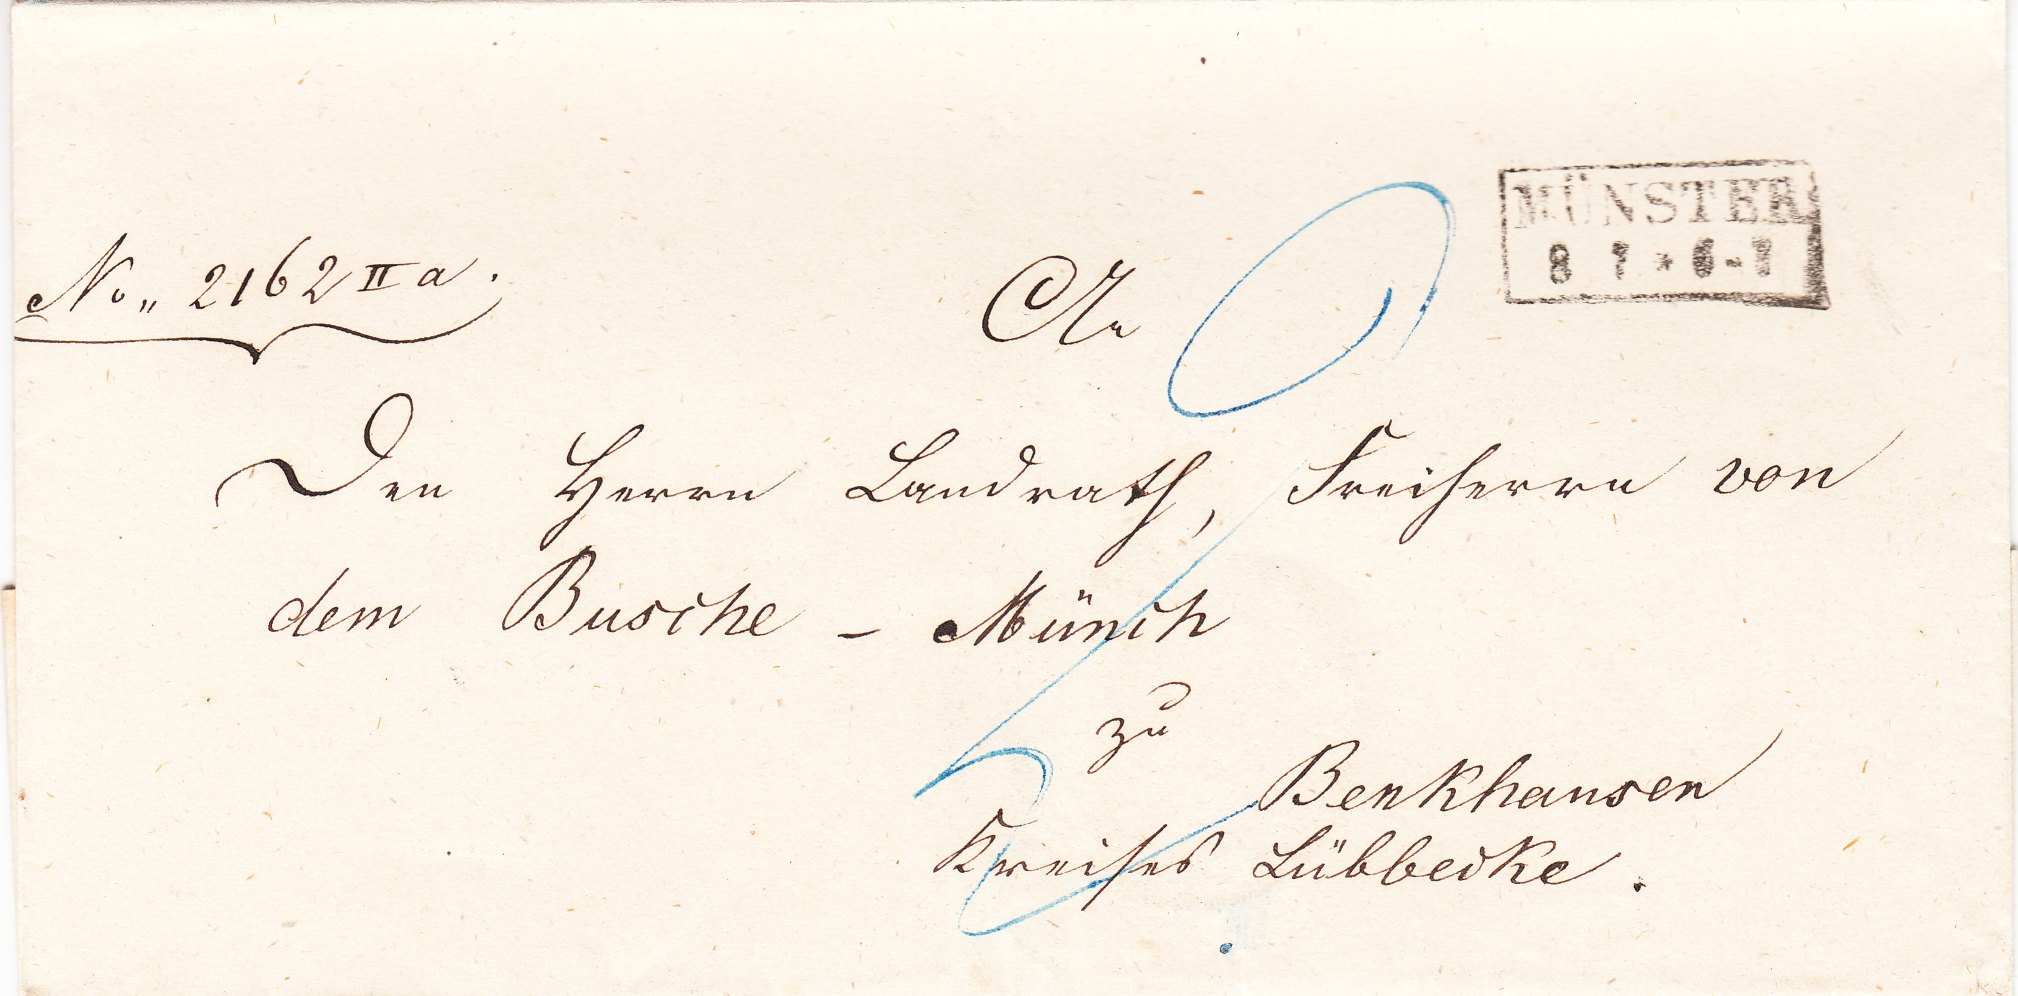 MÜNSTER
8 7 * 6-7
No„ 2162 II a.
An
Den Herrn Landrath, Freiherrn von
dem Busche - Münch
zu
Benkhausen
Kreises Lübbecke.